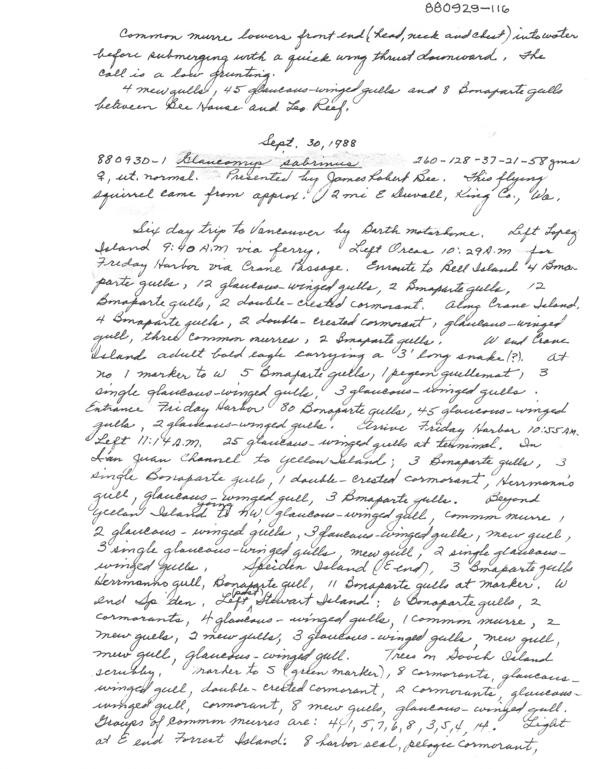 880929-116
Common murre lowers front end (head, neck and chest) into water
before submerging with a quick wing thrust downward. The
call is a low grunting.
4 mew gulls, 45 glaucous-winged gulls and 8 Bonaparte gulls
between Bee House and Leo Reef.
Sept. 30, 1988
880930-1 Glaucomys sabrinus 260-128-37-21-58 gms
♀, ut. normal. Presented by James Robert Bee. This flying
squirrel came from approx. 12 mi E Duvall, King Co., Wa.
Six day trip to Vancouver by Barth motorhome. Left Lopez
Island 9:40 A.M via ferry. Left Orcas 10:29 A.m for
Friday Harbor via Crane Passage. Enroute to Bell Island 4 Bona-
parte gulls, 12 glaucous-winged gulls, 2 Bonaparte gulls, 12
Bonaparte gulls, 2 double-crested cormorant. Along Crane Island.
4 Bonaparte gulls, 2 double-crested cormorant, glaucous-winged
gull, three common murres, 2 Bonaparte gulls. W end Crane
Island adult bald eagle carrying a 3' long snake (?). At
no 1 marker to W 5 Bonaparte gulls, 1 pegeon guillemot, 3
single glaucous-winged gulls, 3 glaucous-winged gulls.
Entrance Friday Harbor 80 Bonaparte gulls, 45 glaucous-winged
gulls, 2 glaucous-winged gulls. Arrive Friday Harbor 10:55 AM.
Left 11:14 A.M. 25 glaucous-winged gulls at terminal. In
San Juan Channel to Yellow Island; 3 Bonaparte gulls, 3
single Bonaparte gulls, 1 double-crested cormorant, Herrmann's
gull, glaucous-winged gull, 3 Bonaparte gulls. Beyond
Yellow Island going to NW, glaucous-winged gull, common murre,
2 glaucous-winged gulls, 3 glaucous-winged gulls, mew gull,
3 single glaucous-winged gulls, mew gull, 2 single glaucous-
winged gulls. Speiden Island (E-end), 3 Bonaparte gulls
Herrmanns gull, Bonaparte gull, 11 Bonaparte gulls at marker. W
end Sp'den. Left (port) Stewart Island: 6 Bonaparte gulls, 2
cormorants, 4 glaucous-winged gulls, 1 common murre, 2
mew gulls, 2 mew gulls, 3 glaucous-winged gulls, mew gull,
mew gull, glaucous-winged gull. Trees on Gooch Island
scrubby. marker to S (green marker), 8 cormorants, glaucous-
winged gull, double-crested cormorant, 2 cormorants, glaucous-
winged gull, cormorant, 8 mew gulls, glaucous-winged gull.
Groups of common murres are: 4, 1, 5, 7, 6, 8, 3, 5, 4, 14. Light
at E end Forrest Island: 8 harbor seal, pelagic cormorant,